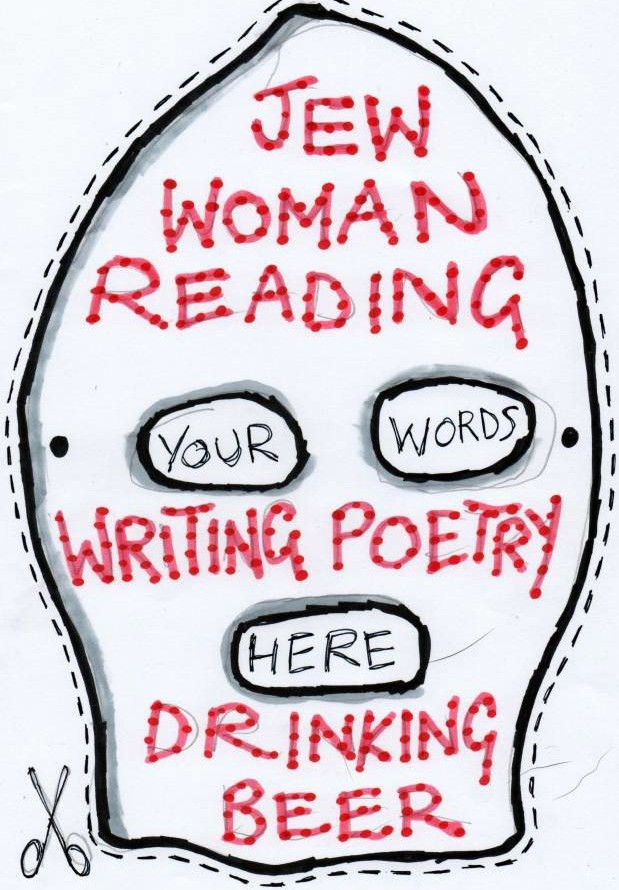 JEW
WOMAN
READING
YOUR WORDS
WRITING POETRY
HERE
DRINKING
BEER